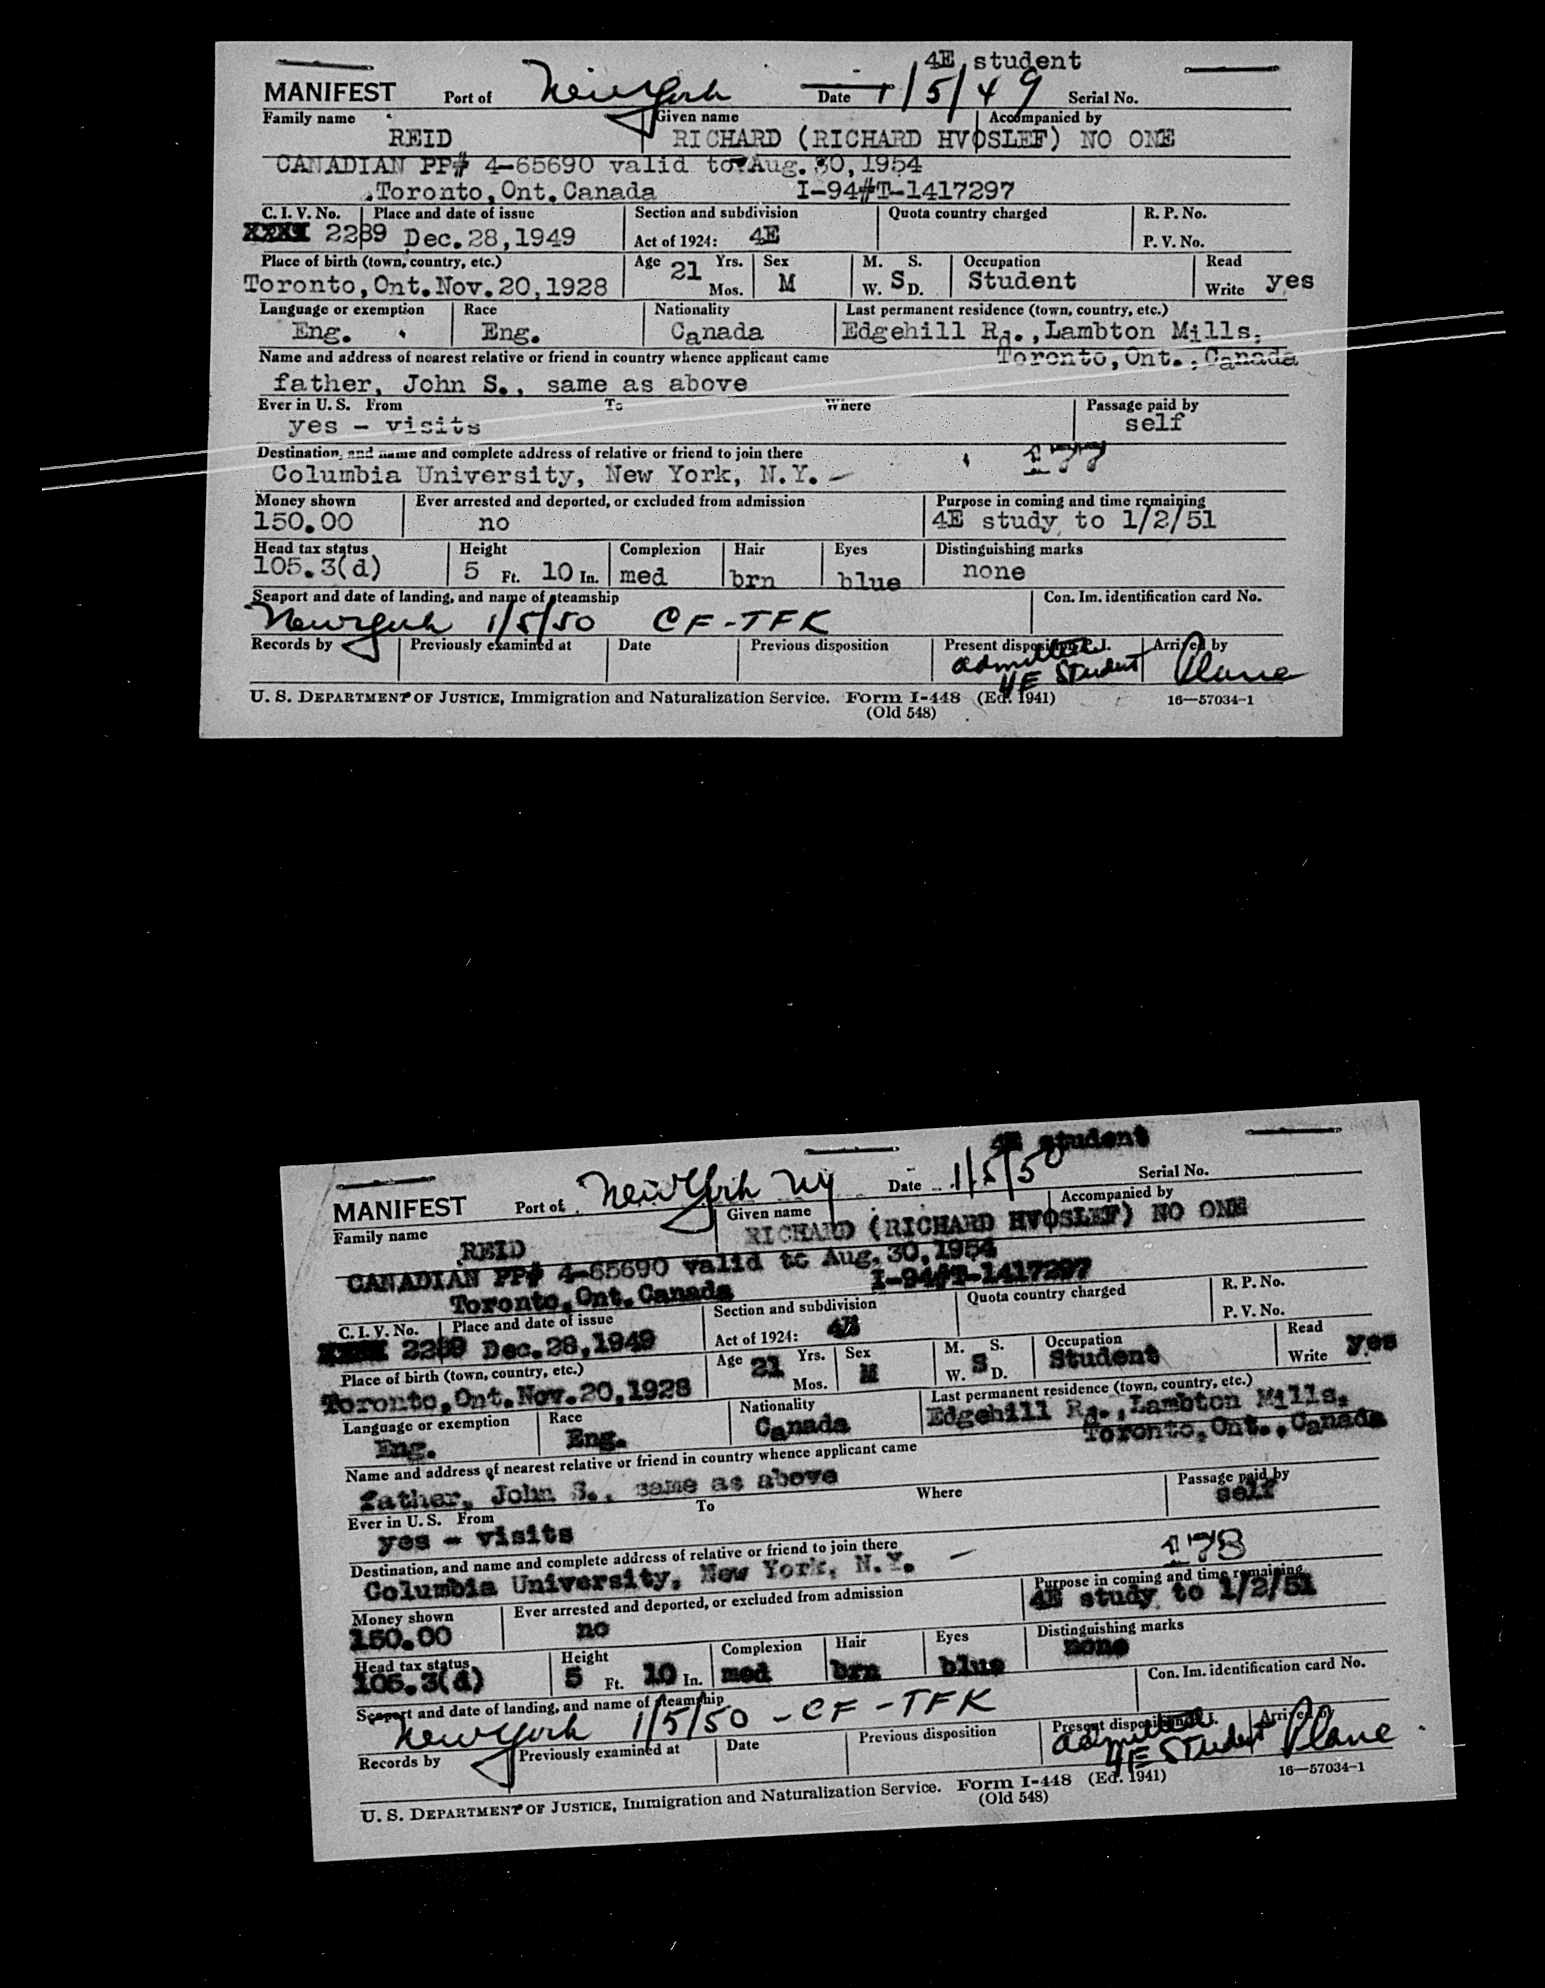 4E student
MANIFEST Port of New York Date 1/5/49 Serial No.
Family name Given name Accompanied by
REID RICHARD (RICHARD HVOSLEF) NO ONE
CANADIAN PP# 4-65690 valid to Aug. 30,1954
Toronto,Ont.Canada I-94#T-1417297
C. I. V. No. Place and date of issue Section and subdivision Quota country charged R. P. No.
XXXX 2289 Dec.28,1949 Act of 1924: 4E P. V. No.
Place of birth (town, country, etc.) Age 21 Yrs. Sex M. S. Occupation Read
Toronto,Ont.Nov.20,1928 Mos. M W. S D. Student Write yes
Language or exemption Race Nationality Last permanent residence (town, country, etc.)
Eng. Eng. Canada Edgehill Rd.,Lambton Mills,
Name and address of nearest relative or friend in country whence applicant came Toronto,Ont.,Canada
father, John S., same as above
Ever in U. S. From To Where Passage paid by
yes - visits self
Destination, and name and complete address of relative or friend to join there 177
Columbia University, New York, N.Y. -
Money shown Ever arrested and deported, or excluded from admission Purpose in coming and time remaining
150.00 no 4E study to 1/2/51
Head tax status Height Complexion Hair Eyes Distinguishing marks
105.3(d) 5 Ft. 10 In. med brn blue none
Seaport and date of landing, and name of steamship Con. Im. identification card No.
New York 1/5/50 CF-TFK
Records by Previously examined at Date Previous disposition Present disposition Arrived by
admitted 4E Student Plane
U. S. DEPARTMENT OF JUSTICE, Immigration and Naturalization Service. Form I-448 (Ed. 1941) 16—57034-1
(Old 548)
4E student
MANIFEST Port of New York NY Date 1/5/50 Serial No.
Family name Given name Accompanied by
REID RICHARD (RICHARD HVOSLEF) NO ONE
CANADIAN PP# 4-65690 valid to Aug.30,1954
Toronto,Ont.Canada I-94#T-1417297
C. I. V. No. Place and date of issue Section and subdivision Quota country charged R. P. No.
XXXX 2289 Dec.28,1949 Act of 1924: 4E P. V. No.
Place of birth (town, country, etc.) Age 21 Yrs. Sex M. S. Occupation Read
Toronto,Ont.Nov.20,1928 Mos. M W. S D. Student Write yes
Language or exemption Race Nationality Last permanent residence (town, country, etc.)
Eng. Eng. Canada Edgehill Rd.,Lambton Mills,
Name and address of nearest relative or friend in country whence applicant came Toronto,Ont.,Canada
father, John S., same as above
Ever in U. S. From To Where Passage paid by
yes - visits self
Destination, and name and complete address of relative or friend to join there 178
Columbia University, New York, N.Y. -
Money shown Ever arrested and deported, or excluded from admission Purpose in coming and time remaining
150.00 no 4E study to 1/2/51
Head tax status Height Complexion Hair Eyes Distinguishing marks
105.3(d) 5 Ft. 10 In. med brn blue none
Seaport and date of landing, and name of steamship Con. Im. identification card No.
New York 1/5/50 - CF-TFK
Records by Previously examined at Date Previous disposition Present disposition Arrived by
admitted 4E Student Plane
U. S. DEPARTMENT OF JUSTICE, Immigration and Naturalization Service. Form I-448 (Ed. 1941) 16—57034-1
(Old 548)